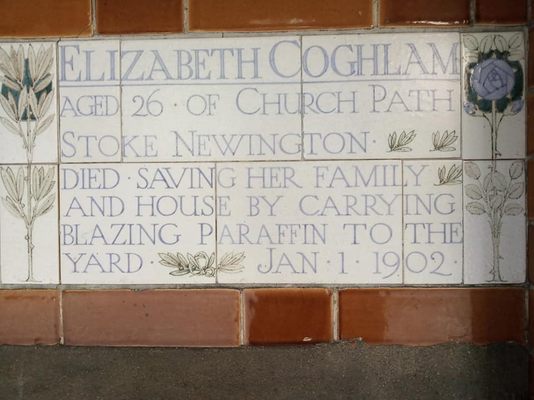 ELIZABETH COGHLAM
AGED 26 · OF CHURCH PATH
STOKE NEWINGTON ·
DIED · SAVING HER FAMILY
AND HOUSE BY CARRYING
BLAZING PARAFFIN TO THE
YARD · JAN · 1 · 1902 ·